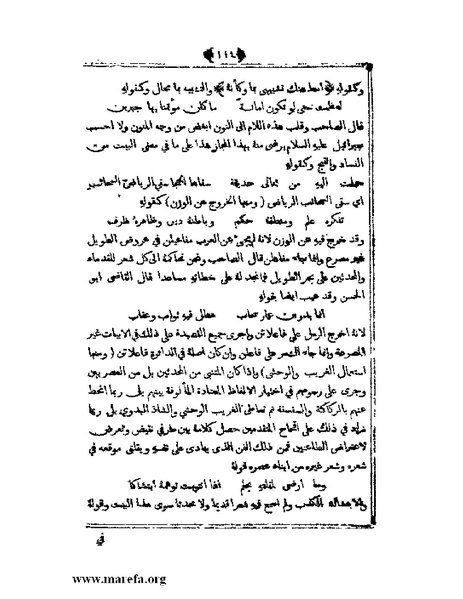 ﴿١٤٤﴾
وكقوله امط عنك تشبيهي بما وكأنه والتشبيه بما محال وكقوله
لعظمت حتى لو تكون امانة ما كان مؤتمنا بها جبرين
قال الصاحب وقلب هذه اللام الى النون ابغض من وجه المنون ولا احسب
جبرائيل عليه السلام يرضى منه بهذا المجاز هذا على ما في معنى البيت من
الفساد والقبح وكقوله
حملت اليه من ثنائي حديقة سقاها الحجا سقي الرياض السحائب
اي سقي السحائب الرياض (ومنها الخروج عن الوزن) كقوله
تفكره علم ومنطقه حكم وباطنه دين وظاهره ظرف
وقد خرج فيه عن الوزن لانه لم يجئ عن العرب مفاعيلن في عروض الطويل
غير مصرع وانما جاء مفاعلن قال الصاحب ونحن نحاكمه الى كل شعر للقدماء
والمحدثين على بحر الطويل فما نجد له على خطائه مساعدا قال القاضي ابو
الحسن وقد عيب ايضا بقوله
انما بدر بن عمار سحاب هطل فيه ثواب وعقاب
لانه اخرج الرمل على فاعلاتن واجرى جميع القصيدة على ذلك في الابيات غير
المصرعة وانما جاء الشعر على فاعلن وان كان اصله في الدائرة فاعلاتن (ومنها
استعمال الغريب والوحشي) واذا كان المتنبي من المحدثين بل من العصريين
وجرى على رسومهم في اختيار الالفاظ المعتادة المألوفة بينهم بل ربما انحط
عنهم بالركاكة والسفسفة ثم تعاطى الغريب الوحشي والشاذ البدوي بل ربما
زاد في ذلك على اقحاح المتقدمين حصل كلامه بين طرفي نقيض وتعرض
لاعتراض الطاعنين فمن ذلك الفن الذي ينادى على نفسه ويقلق موقعه في
شعره وشعر غيره من ابناء عصره قوله
وما ارضى لمقلته بحلم اذا انتبهت توهمه ابتشاكا
والابتشاك الكذب ولم اسمع فيه شعرا قديما ولا محدثا سوى هذا البيت وقوله
في
www.marefa.org